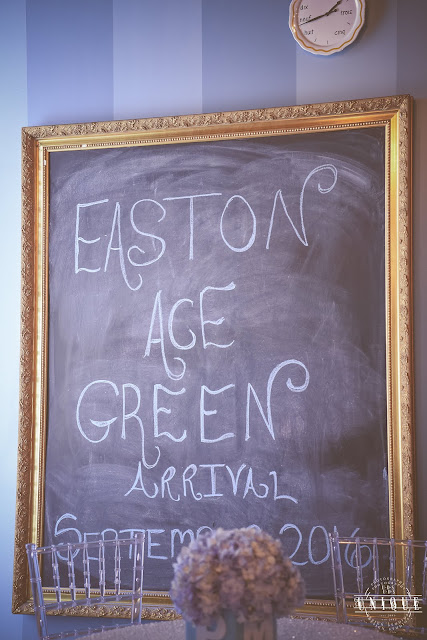 dix
trois
neuf
huit
cinq
EASTON
ACE
GREEN
ARRIVAL
SEPTEMBER 2016
UNIQUE